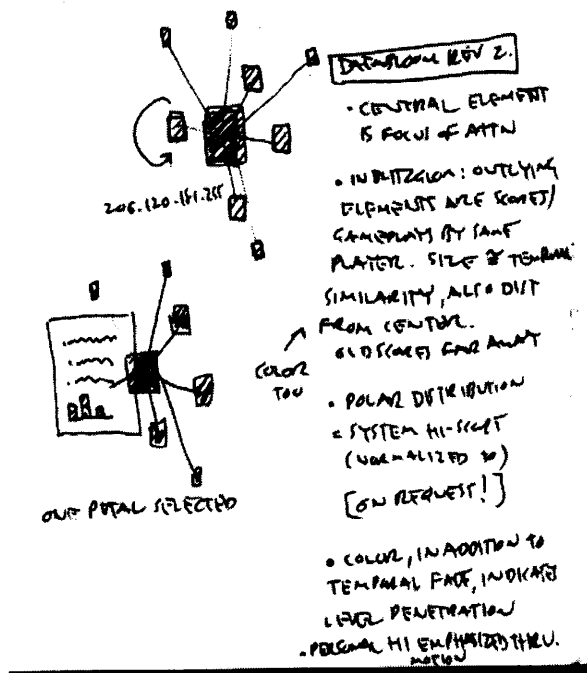 DATABLOOM REV 2.
• CENTRAL ELEMENT
IS FOCUS OF ATTN
• IN BLITZGLOM: OUTLYING
ELEMENTS ARE SCORES/
GAMEPLAYS BY SAME
PLAYER. SIZE ≅ TEMPORAL
SIMILARITY, ALSO DIST
FROM CENTER.
OLD SCORES FAR AWAY
COLOR
TOO
• POLAR DISTRIBUTION
= SYSTEM HI-SCORE
(NORMALIZED
[ON REQUEST!]
• COLOR, IN ADDITION TO
TEMPORAL FADE, INDICATES
LEVEL PENETRATION
• PERSONAL HI EMPHASIZED THRU.
MOTION
206.120.151.255
ONE PETAL SELECTED